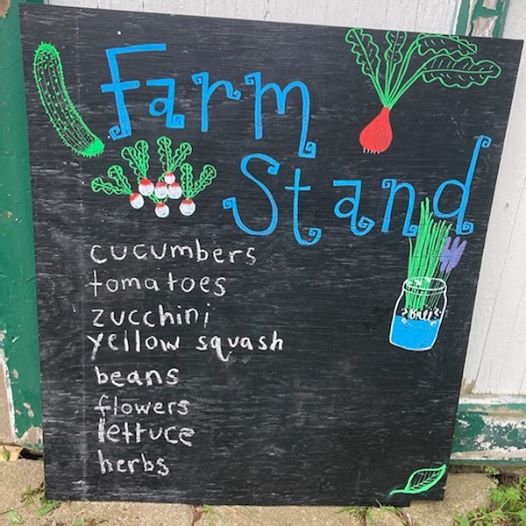 Farm
Stand
cucumbers
tomatoes
zucchini
yellow squash
beans
flowers
lettuce
herbs